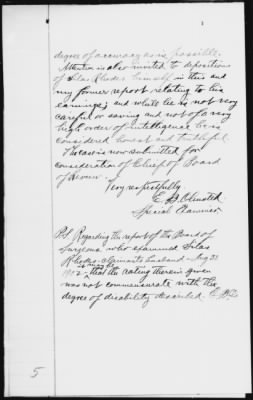 degree of accuracy as is possible.
Attention is also invited to depositions
of Silas Rhodes himself in this and
my former report relating to his
earnings; and while he is not very
careful or saving and not of a very
high order of intelligence he is
considered honest and truthful.
The case is now submitted for
consideration of Chief of Board
of Review.
Very respectfully.
E. B. Olmsted.
Special Examiner
P.S. Regarding the report of the Board of
Surgeons who examined Silas
Rhodes - claimants husband - Aug 31
1902 - that the rating therein given
was not commensurate with the
degree of disability described.
5